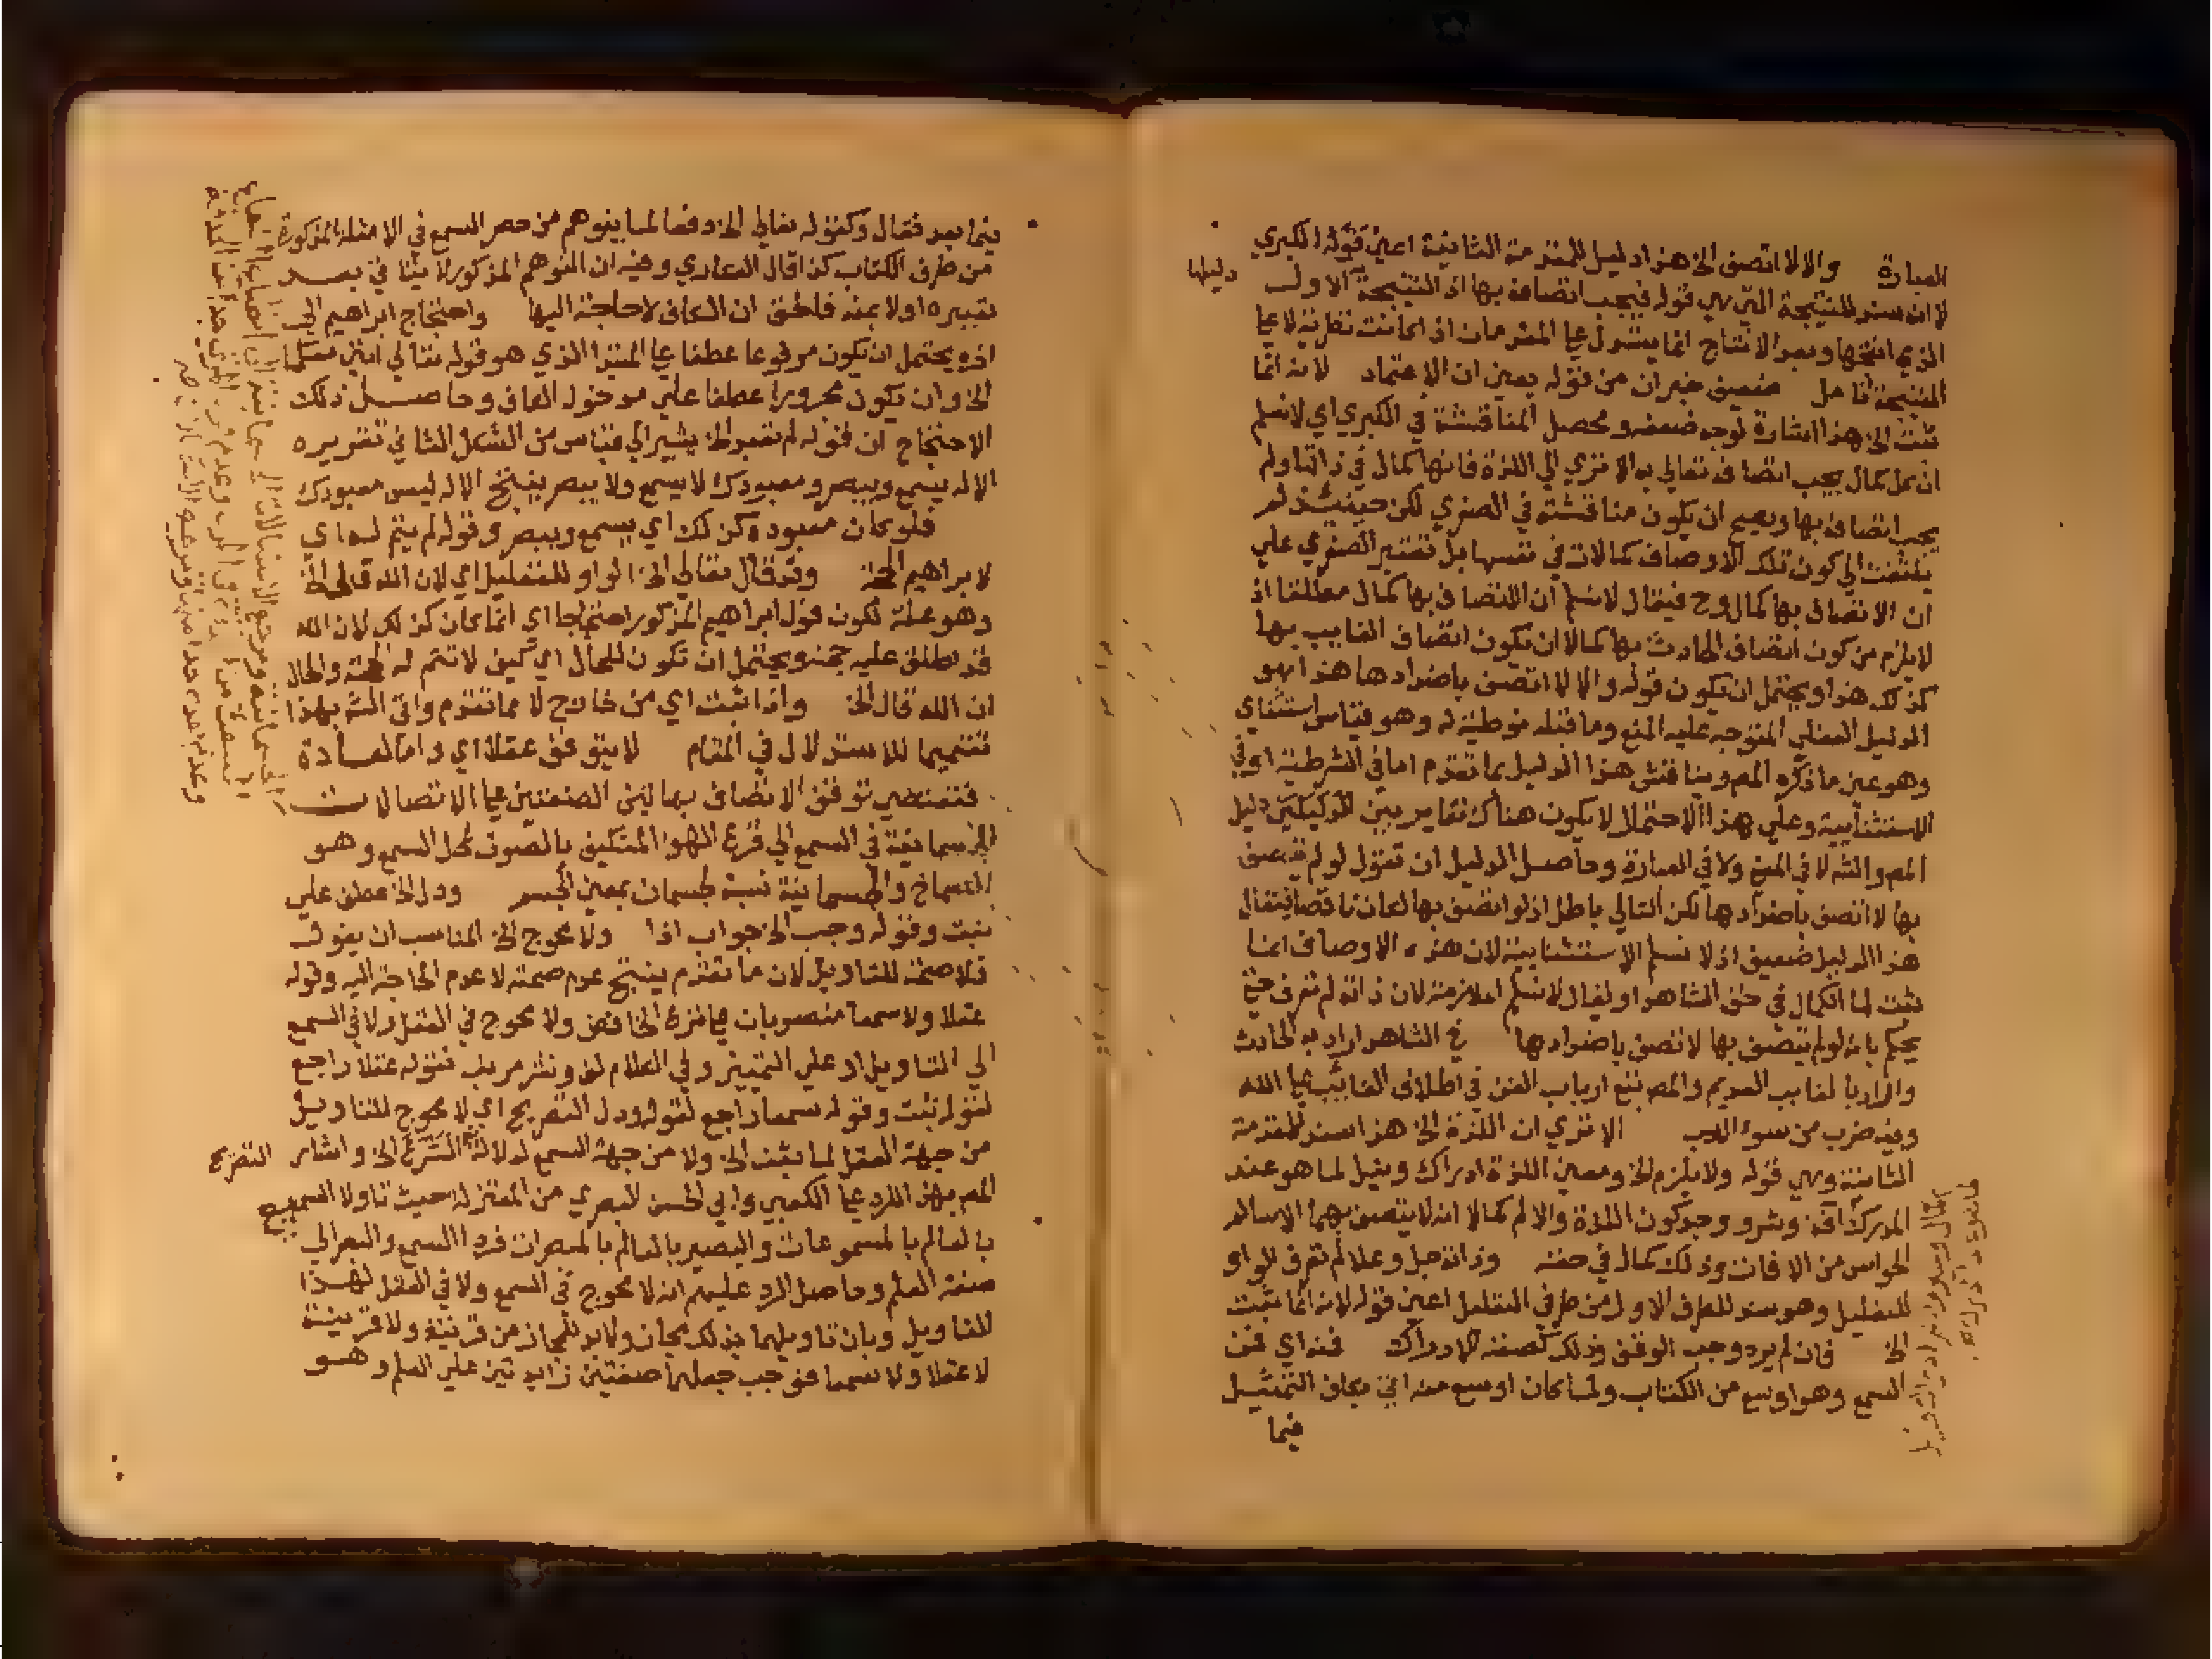 العبارة والا لاتصف الخ هذا دليل للمقدمة الثانية اعني قوله الكبري
لا انه سند للنتيجة التي هي قوله فيجب اتصافه بها اذ النتيجة الاولي
دليلها
الذي انتجها وبعد الانتاج انما يستدل علي المقدمات اذا كانت نظرية لا علي
النتيجة تامل ضعيف خبر ان من قوله يعني ان الاعتماد لانه انما
تثبت الخ هذا اشارة لوجه ضعفه ومحصل المناقشة في الكبري اي لا نسلم
ان كل كمال يجب اتصافه تعالي به الا تري الي اللذة فانها كمال في ذاتها ولم
يجب اتصافه بها ويصح ان يكون مناقشته في الصغري لكن حينئذ لم
يلتفت الي كون تلك الاوصاف كمالات في نفسها بل تعتبر الصغري علي
ان الاتصاف بها كمال وح فيقال لا نسلم ان الاتصاف بها كمال مطلقا اذ
لا يلزم من كون اتصاف الحادث بها كمالا ان يكون اتصاف الغايب بها
كذلك هذا ويحتمل ان يكون قوله والا لاتصف باضدادها هذا هو
الدليل العقلي المتوجه عليه المنع وما قبله توطية له وهو قياس استثناي
وهو عين ما ذكره المص ويناقش هذا الدليل بما تقدم اما في الشرطية او في
الاستثنايية وعلي هذا الاحتمال لا يكون هناك تغاير بين الدليلين دليل
المص والشه لا في المعني ولا في العبارة وحاصل الدليل ان تقول لو لم يتصف
بها لاتصف باضدادها لكن التالي باطل اذ لو اتصف بها لكان ناقصا فيقال
هذا الدليل ضعيف اذ لا نسلم الاستثنايية لان هذه الاوصاف انما
ثبت لها الكمال في حق المشاهد او يقال لا نسلم الملازمة لان ذاته لم تعرف حتي
يحكم بانه لو لم يتصف بها لاتصف باضدادها في الشاهد اراد به الحادث
واراد بالغايب القديم والمص تبع ارباب الفن في اطلاق الغايب علي الله
وفيه ضرب من سوء الادب الا تري ان اللذة الخ هذا سند للمقدمة
الثانية وهي قوله ولا يلزم الخ ومعني اللذة ادراك ونيل لما هو عند
المدرك آفة وشر ووجه كون اللذة والالم كمالا انه لا يتصف بهما الا سالم
الحواس من الافات وذلك كمال في حقه وذاته جل وعلا لم تعرف الواو
للتعليل وهو سند للطرف الاول من طرفي التعليل اعني قوله لانه انما تثبت
الخ فان لم يرد وجب الوقف وذلك كصفة الادراك فنه اي فمن
السمع وهو اوسع من الكتاب ولما كان اوسع منه اتي بكاف التمثيل
فيما
فيما بعد فقال وكقوله تعالي الخ دفعا لما يتوهم من حصر السمع في الامثلة المذكورة
من طرف الكتاب كذا قال العقاري وفيه ان التوهم المذكور لا يتا في بعد
تعبيره اولا بمنه فالحق ان الكاف لا حاجة اليها واحتجاج ابراهيم الخ
اذ يحتمل ان يكون مرفوعا عطفا علي المبتدا الذي هو قوله تعالي انني معكما
الخ وان يكون مجرورا عطفا علي مدخول الكاف وحاصل ذلك
الاحتجاج ان قوله لم تعبد الخ يشير الي قياس من الشكل الثاني تقريره
الاله يسمع ويبصر ومعبودك لا يسمع ولا يبصر ينتج الاله ليس معبودك
فلو كان معبوده كذلك اي يسمع ويبصر وقوله لم يتم له اي
لابراهيم الحجة وقد قال تعالي الخ الواو للتعليل اي لان الله قال الخ
وهو علة لكون قول ابراهيم المذكور احتجاجا اي انما كان كذلك لان الله
قد اطلق عليه حجة ويحتمل ان تكون للحال اي كيف لا تتم له الحجة والحال
ان الله قال الخ واذا ثبت اي من خارج لا مما تقدم واتي الشه بهذا
تتميما للاستدلال في المقام لا يتوقف عقلا اي واما العادة
فتقتضي توقف الاتصاف بهاتين الصفتين علي الاتصالات
الجسمانية في السمع الي قرع الهوا المتكيف بالصوت لمحل السمع وهو
الصماخ والجسمانية نسبة لجسمان بمعني الجسم ودل الخ عطف علي
ثبت وقوله وجب الخ جواب اذا ولا يحوج الخ المناسب ان يقول
فلا صحة للتاويل لان ما تقدم ينتج عدم صحته لا عدم الحاجة اليه وقوله
عقلا ولا سمعا منصوبات علي نزع الخافض ولا يحوج في العقل ولا في السمع
الي التاويل او علي التمييز وفي الكلام لف ونشر مرتب فقوله عقلا راجع
لقوله ثبت وقوله سمعا راجع لقوله ودل التصريح اي لا يحوج للتاويل
من جهة العقل لما ثبت الخ ولا من جهة السمع لدلالة الشرع الخ واشار
التصريح
المص بهذا للرد علي الكعبي وابي الحسين البصري من المعتزلة حيث تاولا السميع
بالعالم بالمسموعات والبصير بالعالم بالمبصرات فردا السمع والبصر الي
صفة العلم وحاصل الرد عليهم انه لا يحوج في السمع ولا في العقل لهذا
التاويل وبان تاويلهما بذلك مجاز ولا بد للمجاز من قرينة ولا قرينة
لا عقلا ولا سمعا فوجب جعلهما صفتين زايدتين علي العلم وهو